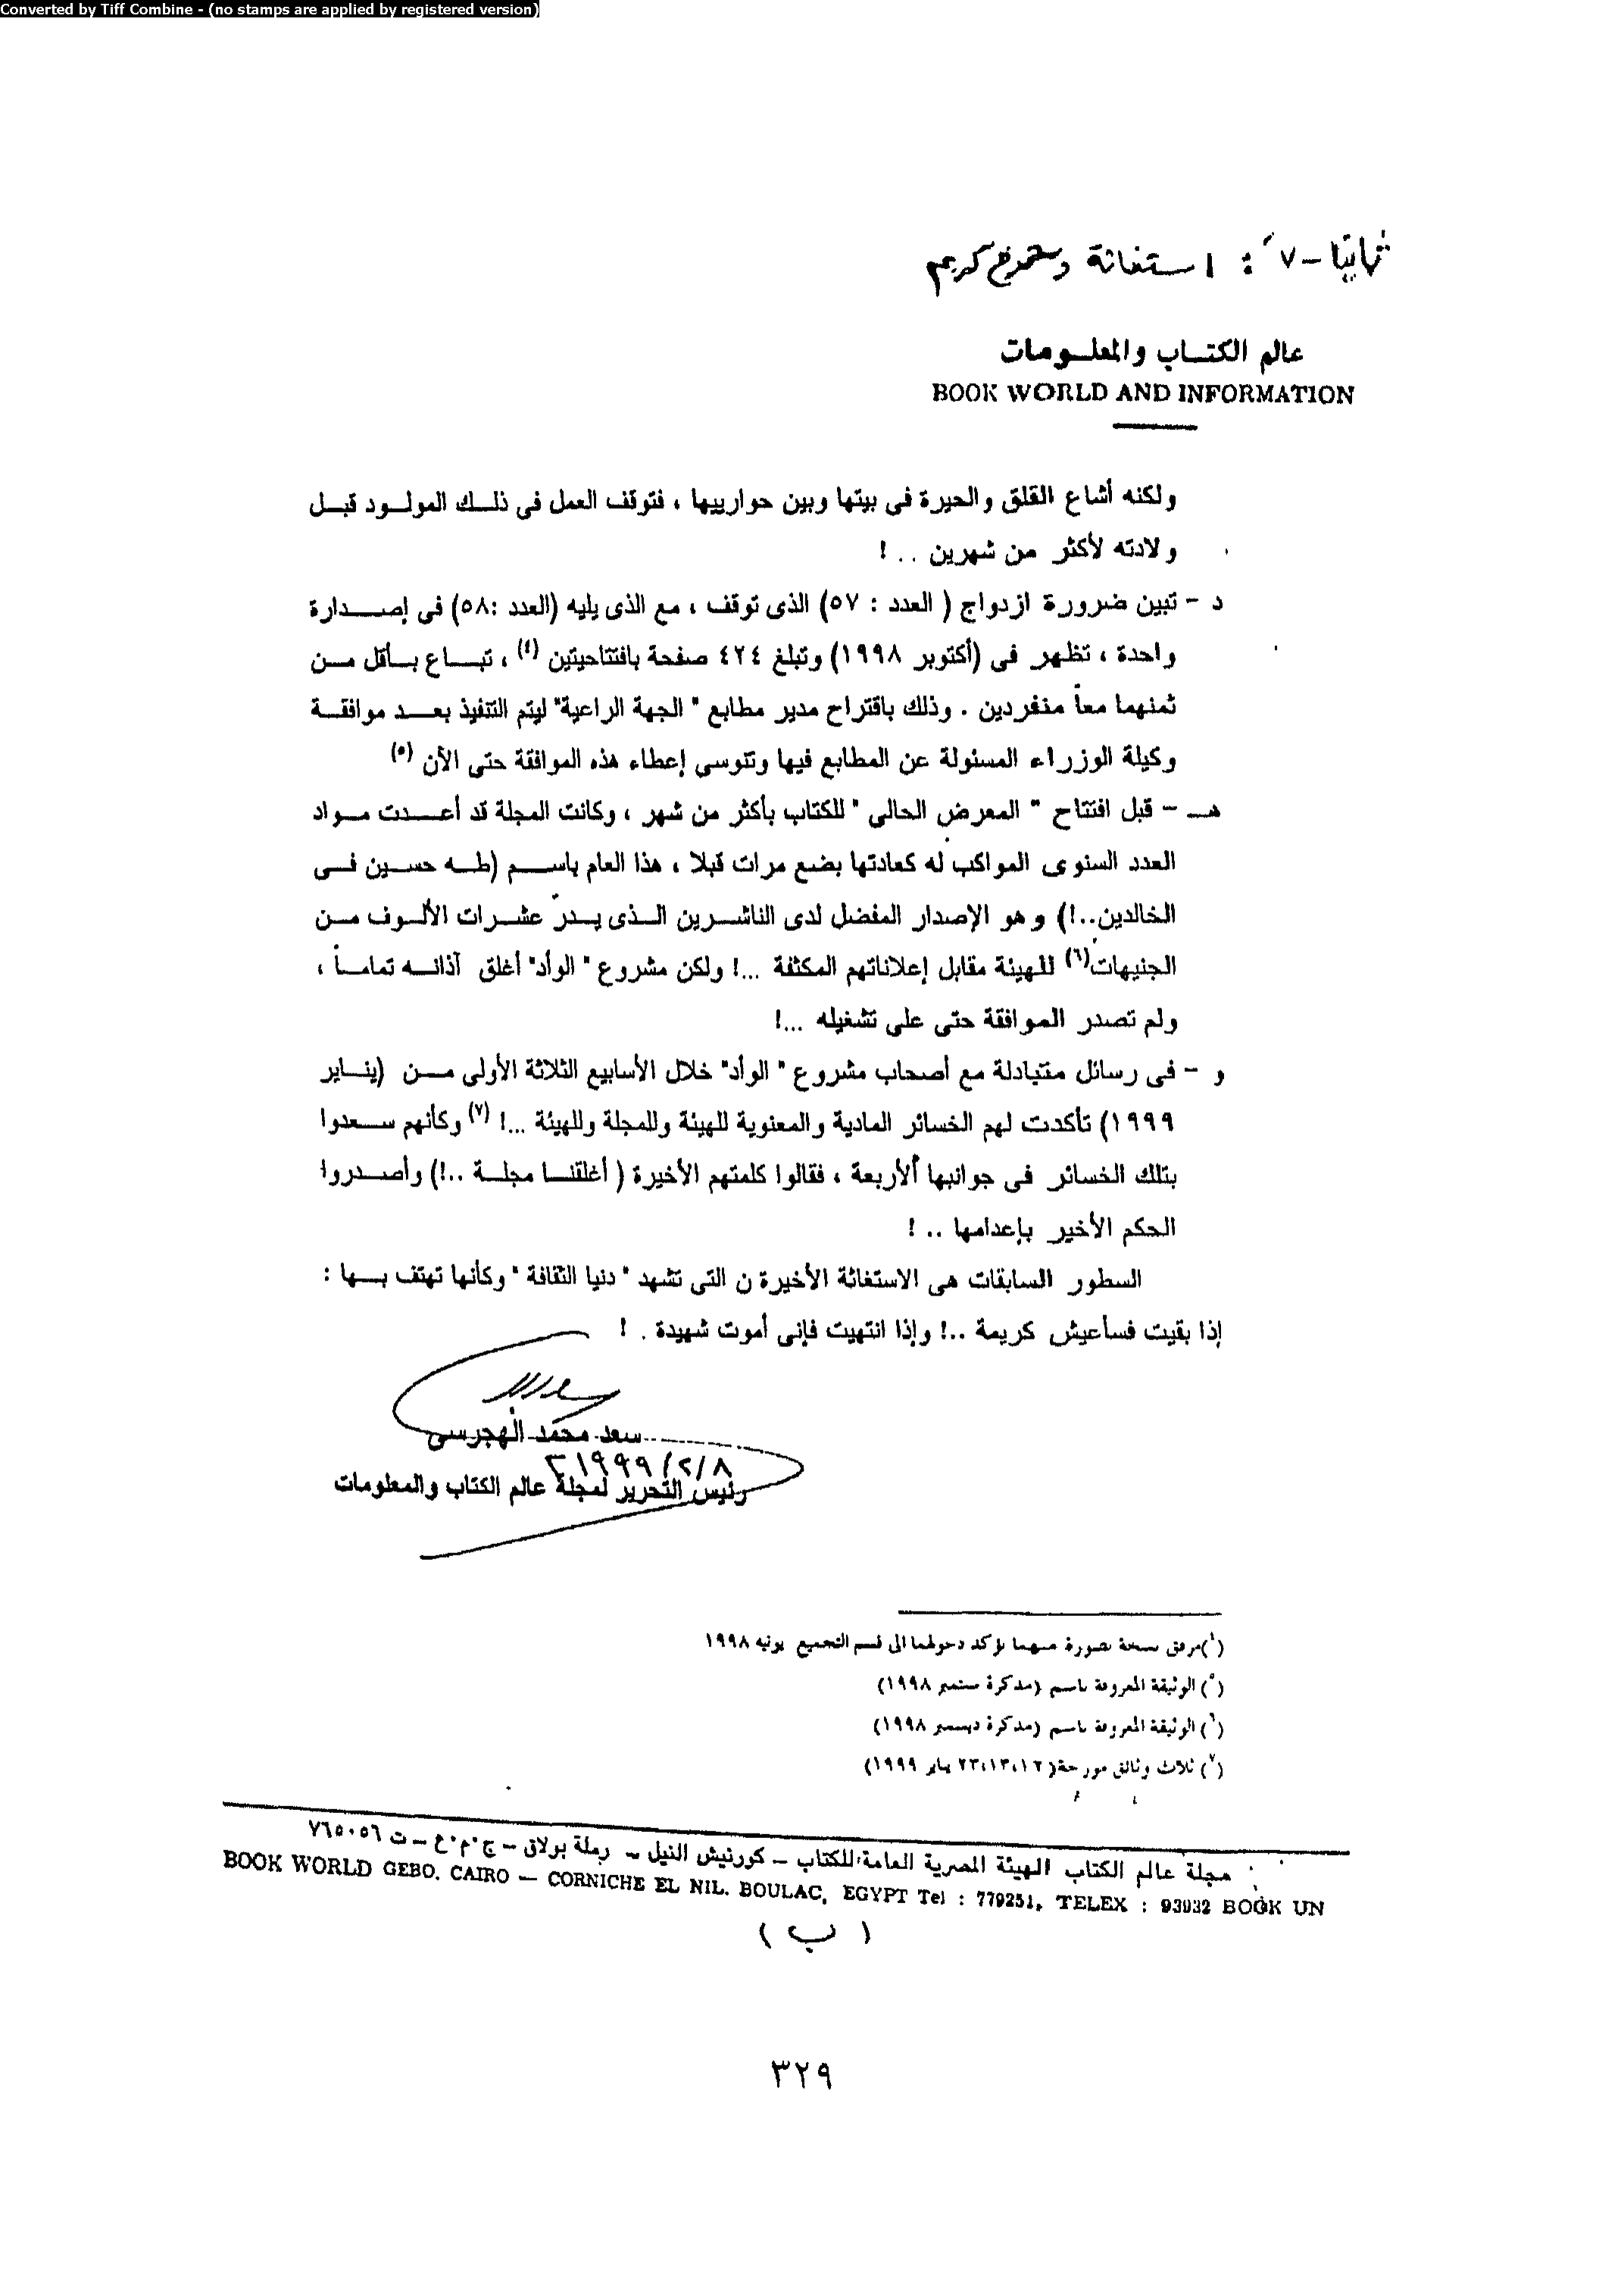 Converted by Tiff Combine - (no stamps are applied by registered version)
ثانيا - ٧ : استغاثة كريم
عالم الكتـــاب والمعلــومات
BOOK WORLD AND INFORMATION
ولكنه أشاع القلق والحيرة فى بيتها وبين حوارييها ، فتوقف العمل فى ذلــك المولــود قبــل
ولادته لأكثر من شهرين . . !
د - تبين ضرورة ازدواج ( العدد : ٥٧) الذى توقف ، مع الذى يليه (العدد :٥٨) فى إصــــدارة
واحدة ، تظهر فى (أكتوبر ١٩٩٨) وتبلغ ٤٢٤ صفحة بافتتاحيتين (٤) ، تبــــاع بــأقل مــن
ثمنهما معاً منفردين . وذلك باقتراح مدير مطابع " الجهة الراعية" ليتم التنفيذ بعــد موافقــة
وكيلة الوزراء المسئولة عن المطابع فيها وتنوسى إعطاء هذه الموافقة حتى الآن (٥)
هــ - قبل افتتاح " المعرض الحالى " للكتاب بأكثر من شهر ، وكانت المجلة قد أعــــدت مــواد
العدد السنوى المواكب له كعادتها بضع مرات قبلا ، هذا العام باســـم (طــه حســين فــى
الخالدين..!) و هو الإصدار المفضل لدى الناشــرين الــذى يــدرّ عشــرات الألــوف مــن
الجنيهات(٦) للهيئة مقابل إعلاناتهم المكثفة ...! ولكن مشروع " الوأد" أغلق آذانــه تمامــاً ،
ولم تصدر الموافقة حتى على تشغيله ...!
و - فى رسائل متبادلة مع أصحاب مشروع " الوأد" خلال الأسابيع الثلاثة الأولى مــن (ينــاير
١٩٩٩) تأكدت لهم الخسائر المادية والمعنوية للهيئة وللمجلة وللهيئة ...! (٧) وكأنهم ســعدوا
بتلك الخسائر فى جوانبها الأربعة ، فقالوا كلمتهم الأخيرة ( أغلقنــا مجلــة ..!) وأصــدروا
الحكم الأخير بإعدامها .. !
السطور السابقات هى الاستغاثة الأخيرة ن التى تشهد " دنيا الثقافة " وكأنها تهتف بــها :
إذا بقيت فسأعيش كريمة ..! وإذا انتهيت فإنى أموت شهيدة . !
سعد محمد الهجرسى
١٩٩٩/٢/٨
رئيس التحرير لمجلة عالم الكتاب والمعلومات
مرفق نسخة مصورة منهما يؤكد دخولهما الى قسم التجميع يونيه ١٩٩٨
(٥) الوثيقة المعروفة باسم (مذكرة سبتمبر ١٩٩٨)
(٦) الوثيقة المعروفة باسم (مذكرة ديسمبر ١٩٩٨)
(٧) ثلاث وثائق مورخة( ١٢،١٣،٢٣ يناير ١٩٩٩)
مجلة عالم الكتاب الهيئة المصرية العامة للكتاب - كورنيش النيل - رملة بولاق - ج.م.ع - ت ٧٦٥٠٥٦
BOOK WORLD GEBO. CAIRO — CORNICHE EL NIL. BOULAC, EGYPT Tel : 779251, TELEX : 93932 BOOK UN
( ب )
٣٢٩